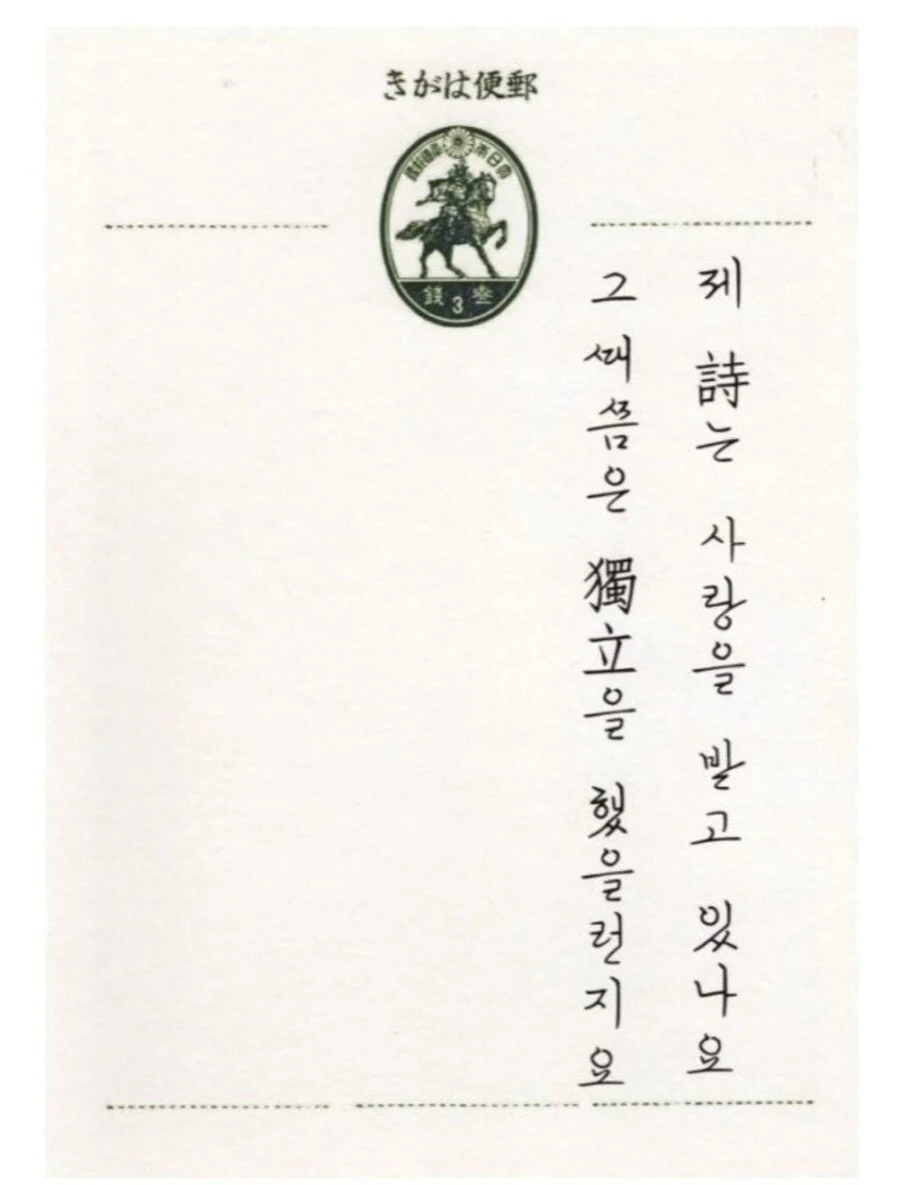 郵便はがき
參3錢
제 詩는 사랑을 받고 있나요
그 때쯤은 獨立을 했을런지요